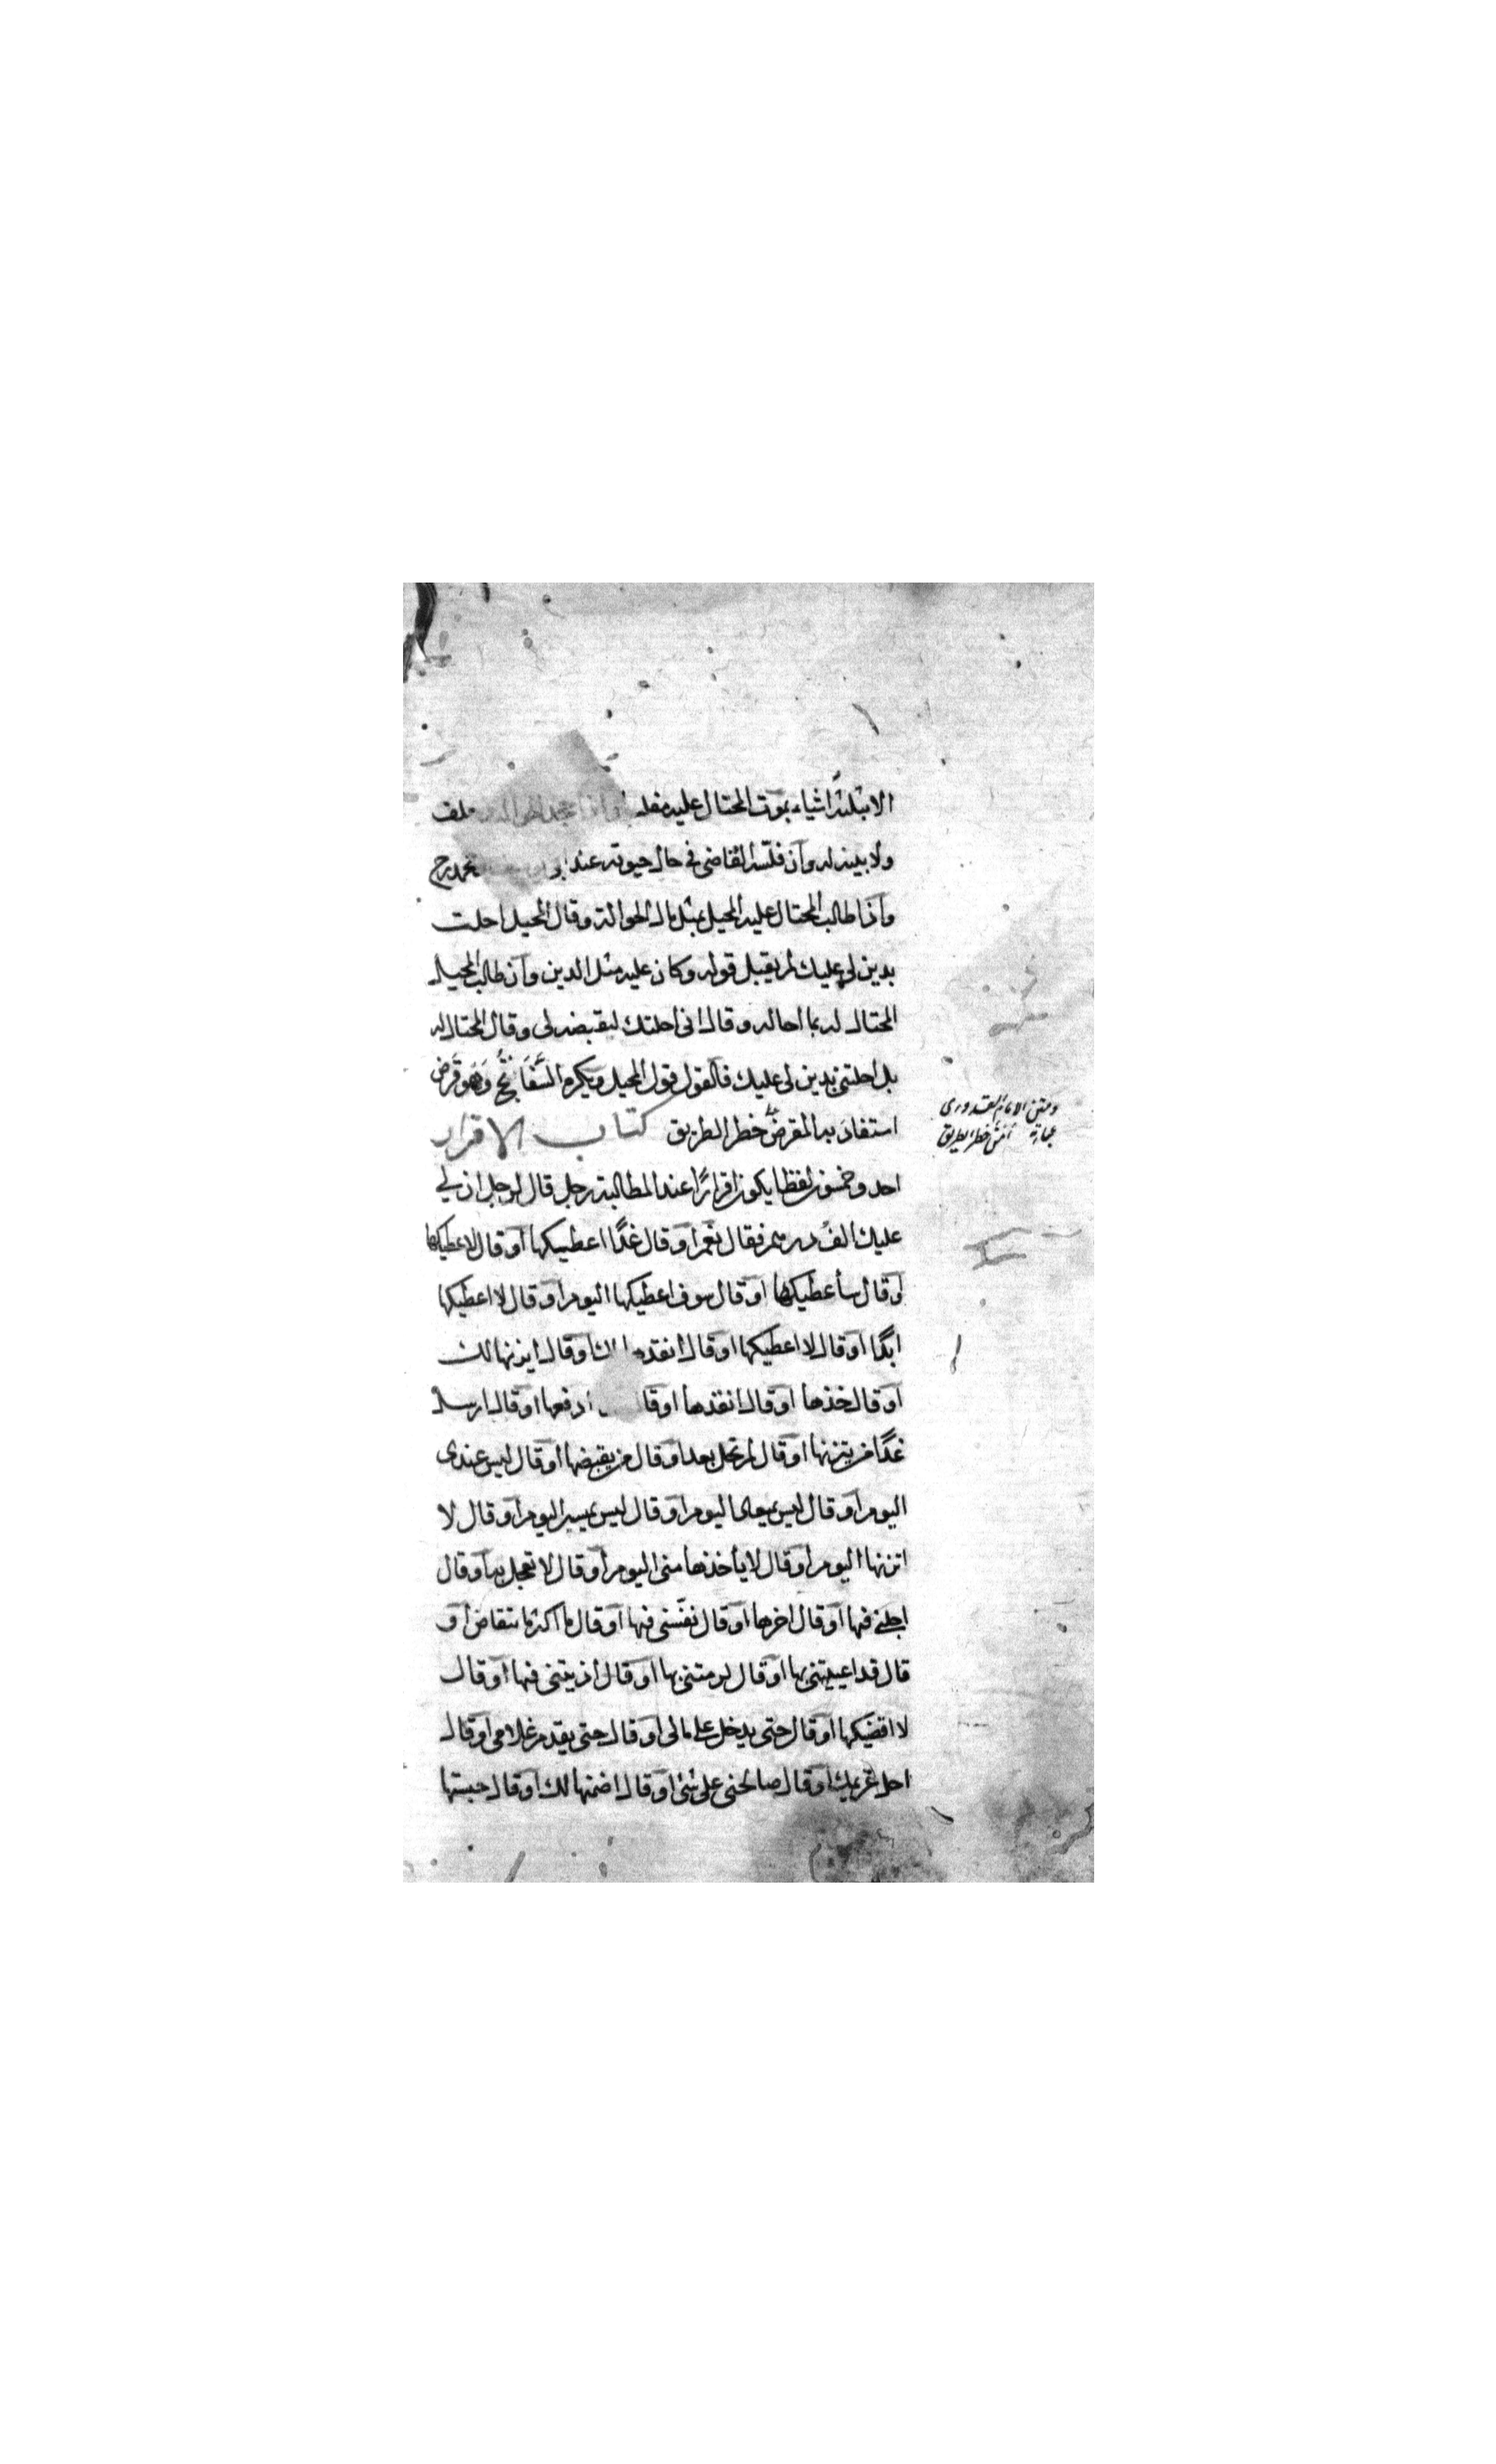 الا بثلثة اشياء بموت المحتال عليه مفلسا واذا جحد الحوالة وحلف
ولا بينة له وآن فلّسه القاضى فى حال حيوته عند محمد رح
وآذا طالب المحتال عليه المحيل بمثل مال الحوالة وقال المحيل احلت
بدين لى عليك لم يقبل قوله وكان عليه مثل الدين وآن طالب المحيل
المحتال له بما احاله وقال انى احلتك ليقبضه لى وقال المحتال له
بل احلتنى بدين لى عليك فالقول قول المحيل ويكره السَّفَاتج وَهو قَرض
استفاد به المقرض خطر الطريق كتاب الاقرار
ومتن الامام القدورى
عبارة امن خطر الطريق
احد وخمسون لفظا يكون اقرارًا عند المطالبة رجل قال لرجل ان لى
عليك الف درهم فقال نعم اوقال غدًا اعطيكها اوقال لاعطيكها
اوقال سأعطيكها اوقال سوف اعطيكها اليوم اوقال لا اعطيكها
ابدًا اوقال لا اعطيكها اوقال انقدها لك اوقال ايزنها لك
اوقال خذها اوقال انقدها اوقال ادفعها اوقال ارسل
غدًا من يتزنها اوقال لم تحل بعد اوقال من يقبضها اوقال ليس عندى
اليوم اوقال ليس بمعى اليوم اوقال ليس بميسر اليوم اوقال لا
اتزنها اليوم اوقال لا يأخذها منى اليوم اوقال لا تعجل بها اوقال
اجلنى فيها اوقال اخرها اوقال نفّسنى فيها اوقال ما اكثر ما تتقاضا او
قال قد اعييتنى بها اوقال لزمتنى بها اوقال اذيتنى فيها اوقال
لا اقضيكها اوقال حتى يدخل على مالى اوقال حتى يقدم غلامى اوقال
احل غريمك اوقال صالحنى على شئ اوقال اضمنها لك اوقال حبستها